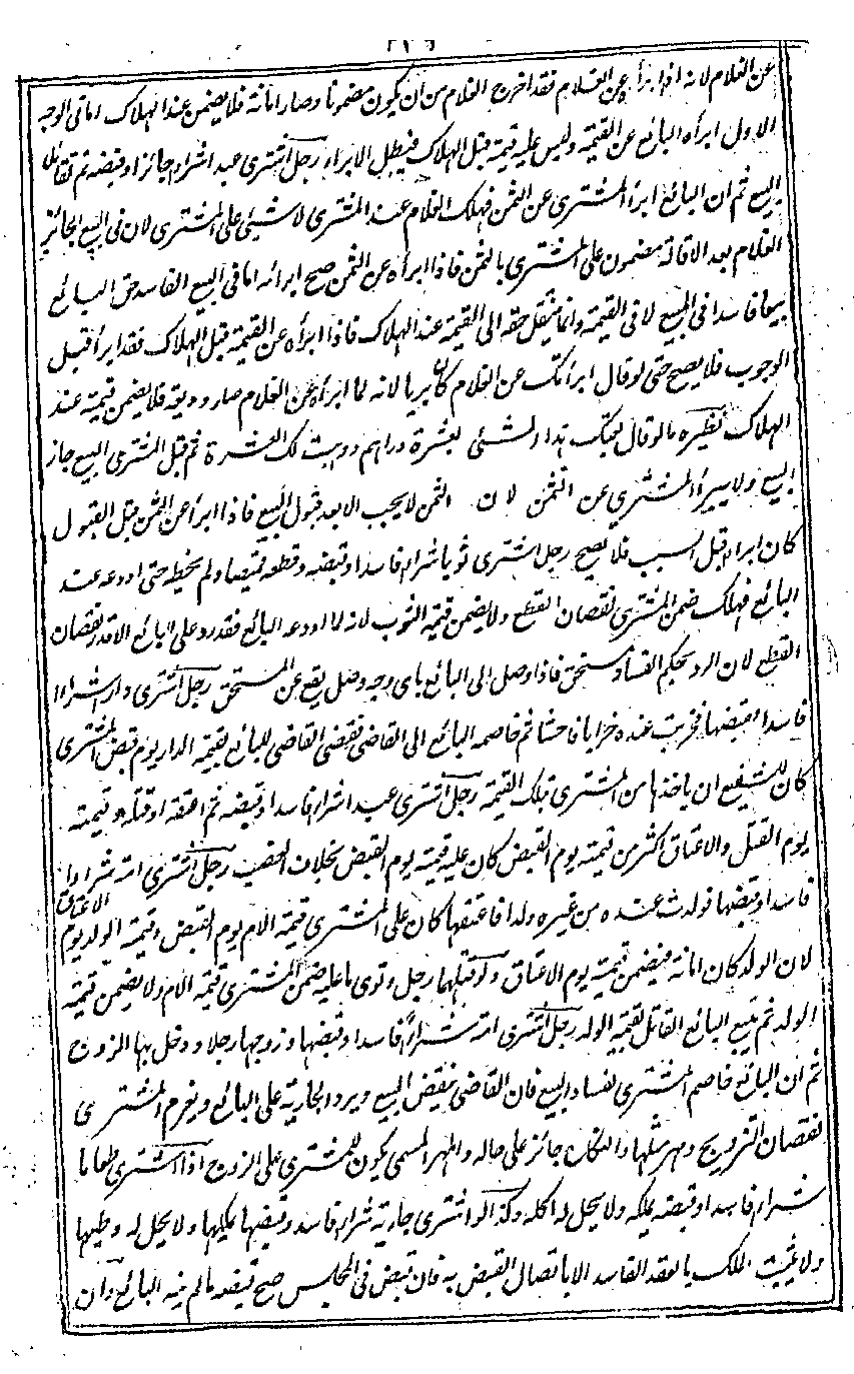 عن الغلام لانه اذا ابرأه عن الغلام فقد اخرج الغلام من ان يكون مضمونا وصار امانة فلا يضمن عند الهلاك اما فى الوجه
الاول ابرأه البائع عن القيمة وليس عليه قيمة قبل الهلاك فيبطل الابراء رجل اشترى عبدا شراء جائزا وقبضه ثم تقايلا
البيع ثم ان البائع ابرأ المشترى عن الثمن فهلك الغلام عند المشترى لا شيئ على المشترى لان فى البيع الجائز
الغلام بعد الاقالة مضمون على المشترى بالثمن فاذا ابرأه عن الثمن صح ابرائه اما فى البيع الفاسد حق البائع
بيعا فاسدا فى المبيع لا فى القيمة وانما ينتقل حقه الى القيمة عند الهلاك فاذا ابرأه عن القيمة قبل الهلاك فقد ابرأ قبل
الوجوب فلا يصح حتى لو قال ابرأتك عن الغلام كان بريا لانه لما ابرأه عن الغلام صار وديعة فلا يضمن قيمته عند
الهلاك نظيره ما لو قال بعتك هذا الشئى بعشرة دراهم ووهبت لك العشرة ثم قبل المشترى البيع جاز
البيع ولا يبرأ المشترى عن الثمن لان الثمن لا يجب الا بعد قبول البيع فاذا ابرأ عن الثمن قبل القبول
كان ابراء قبل السبب فلا يصح رجل اشترى ثوبا شراء فاسدا وقبضه وقطعه قميصا ولم يخطه حتى اودعه عند
البائع فهلك ضمن المشترى نقصان القطع ولا يضمن قيمة الثوب لانه لما اودعه البائع فقد رد على البائع الا قدر نقصان
القطع لان الرد بحكم الفساد مستحق فاذا وصل الى البائع باى وجه وصل يقع عن المستحق رجل اشترى دارا شراء
فاسدا فقبضها فخربت عنده خرابا فاحشا ثم خاصمه البائع الى القاضى فقضى القاضى للبائع بقيمة الدار يوم قبض المشترى
كان للشفيع ان ياخذها من المشترى بتلك القيمة رجل اشترى عبدا شراء فاسدا وقبضه ثم اعتقه او قتله وقيمته
يوم القتل والاعتاق اكثر من قيمته يوم القبض كان عليه قيمته يوم القبض بخلاف الغصب رجل اشترى امة شراء
فاسدا وقبضها فولدت عنده من غيره ولدا فاعتقها كان على المشترى قيمة الام يوم القبض وقيمة الولد يوم الاعتاق
لان الولد كان امانة فيضمن قيمته يوم الاعتاق ولو قتلها رجل وتوى ما عليه ضمن المشترى قيمة الام ولا يضمن قيمة
الولد ثم يتبع البائع القاتل بقيمة الولد رجل اشترى امة شراء فاسدا وقبضها وزوجها رجلا ودخل بها الزوج
ثم ان البائع خاصم المشترى لفساد البيع فان القاضى ينقض البيع ويرد الجارية على البائع ويغرم المشترى
نقصان التزويج ومهر مثلها والنكاح جائز على حاله والمهر المسمى يكون للمشترى على الزوج اذا اشترى طعاما
شراء فاسدا وقبضه يملكه ولا يحل له اكله وكذا لو اشترى جارية شراء فاسدا وقبضها يملكها ولا يحل له وطيها
ولا يثبت الملك بالعقد الفاسد الا باتصال القبض به فان قبض فى المجلس صح قبضه ما لم ينه البائع وان